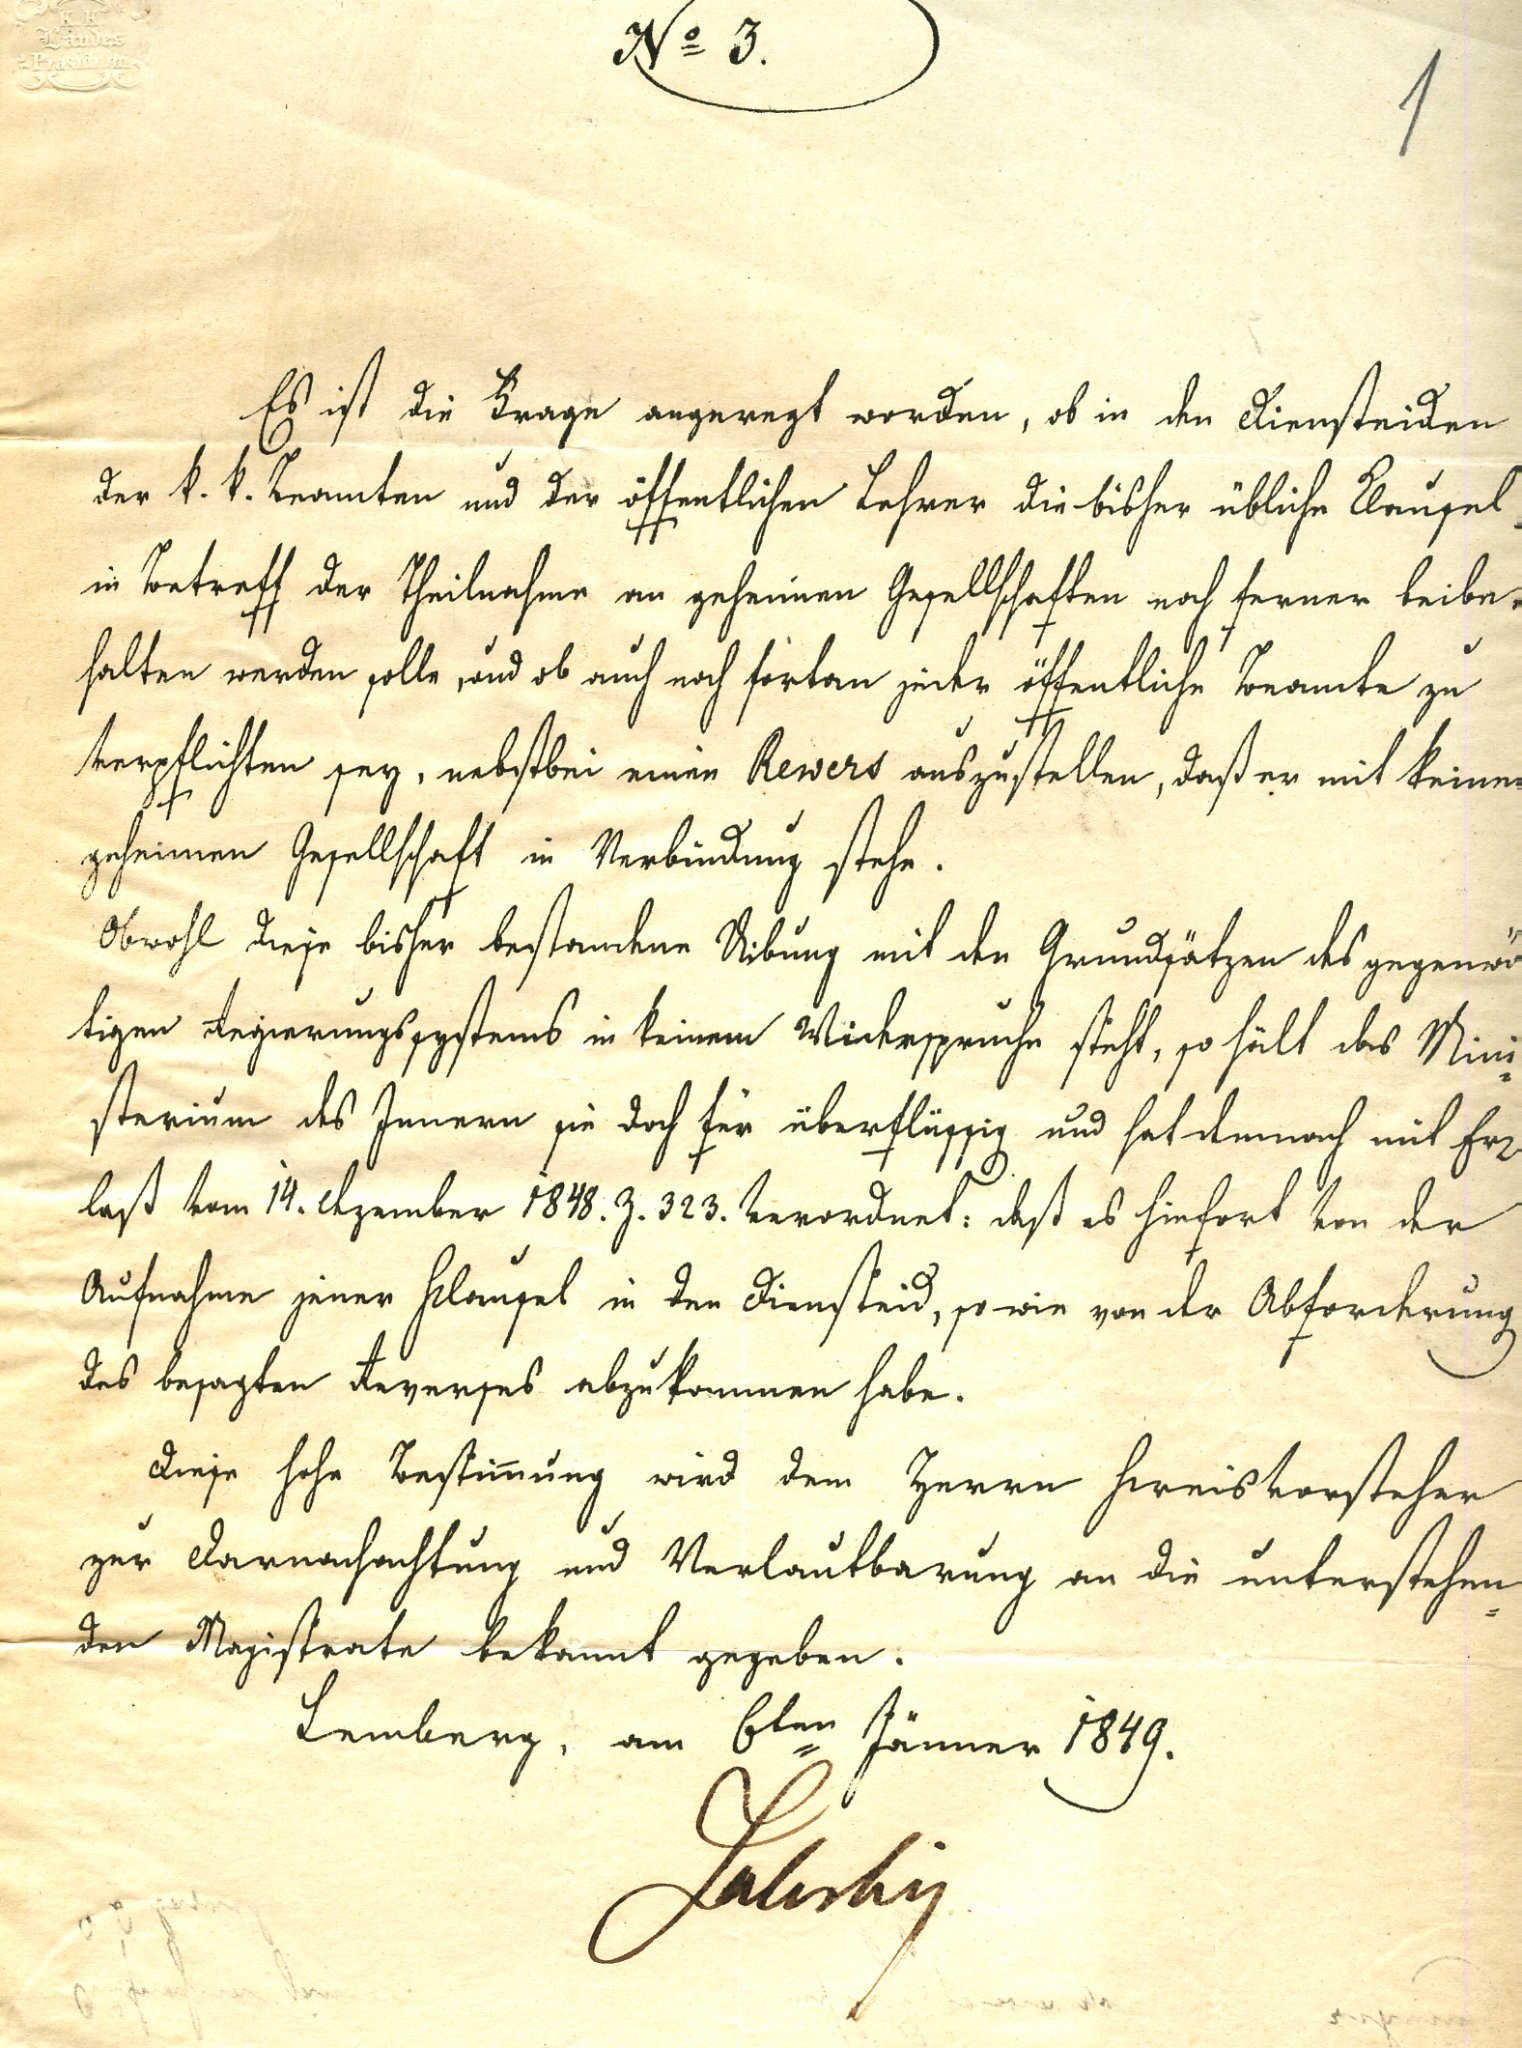 K. K.
Landes
Praesidium
No 3.
1
Es ist die Frage angeregt worden, ob in den Diensteiden
der k. k. Beamten und der öffentlichen Lehrer die bisher übliche Clausel
in Betreff der Theilnahme an geheimen Gesellschaften noch ferner beibe-
halten werden solle, und ob auch noch fortan jeder öffentliche Beamte zu
verpflichten sey, nebstbei einen Rewers auszustellen, daß er mit keiner
geheimen Gesellschaft in Verbindung stehe.
Obwohl diese bisher bestandene Uibung mit den Grundsätzen des gegenwär
tigen Regierungssystems in keinem Widerspruche steht, so hält das Mini-
sterium des Innern sie doch für überflüssig und hat demnach mit Er-
laß vom 14. Dezember 1848. Z. 323. verordnet: daß es hinfort von der
Aufnahme jener Klausel in den Diensteid, so wie von der Abforderung
des besagten Reverses abzukommen habe.
Diese hohe Bestimmung wird dem Herrn Kreisvorsteher
zur Darnachachtung und Verlautbarung an die unterstehen-
den Magistrate bekannt gegeben.
Lemberg, am 6ten Jänner 1849.